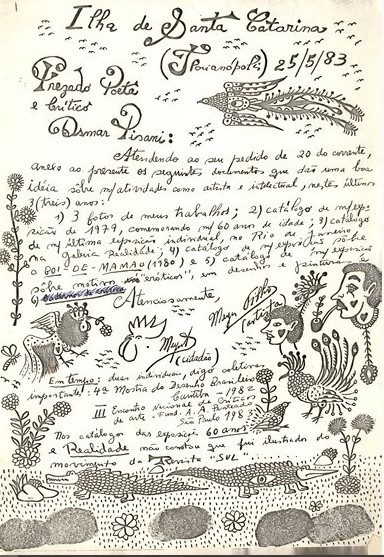 1
Ilha de Santa Catarina
(Florianópolis) 25/5/83
Prezado Poeta
e Crítico
Osmar Pisani:
Atendendo ao seu pedido de 20 do corrente,
anexo ao presente os seguintes documentos que dão uma boa
idéia sôbre m/atividades como artista e intelectual, nestes últimos
3 (três) anos:
1) 3 fotos de meus trabalhos; 2) catálogo de m/expo-
sição de 1979, comemorando m/60 anos de idade; 3) catálogo
de m/última exposição individual, no Rio de Janeiro
na galeria Realidade; 4) catálogo de m/exposição sôbre
o BOI-DE-MAMÃO (1980) e 5) catálogo de m/exposição
sôbre motivos "eróticos", em desenhos e pinturas
Atenciosamente,
Meyer Filho
(artista)
(cidadão)
Em tempo: duas individuais, digo coletivas
importantes: 4ª Mostra do Desenho Brasileiro
Curitiba - 1982
III Encontro Nacional de Críticos
de arte - Fund. A. A. Penteado
São Paulo 198
Nos catálogos das exposições 60 anos
e Realidade não constou que fui ilustrador do
movimento da Revista "SUL"